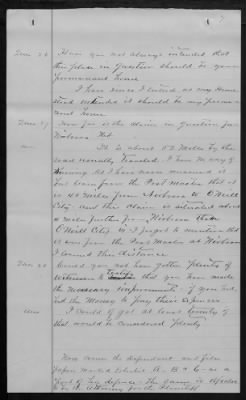 7
Ques 26 Have you not always intended that
this place in Question should be your
permanent home
I have since I entered as my Home
stead intended it should be my perma
nent home
Ques 27 How far is the claim in Question from
Niobrara Neb
Ans It is about 52 Miles by the
road usually traveled. I have no way of
Knowing as I have never measured it
I only learn from the Post Master that it
is 40 miles from Niobrara to O'Neill
City and the claim is situated about
miles further from Niobrara than
O'Neill City. I forgot to mention that
it was from the Post Master at Niobrara
I learned this distance
Ques 28 Could you not have gotten plenty of
witnesses to testify that you have made
the necessary improvements if you had
had the Money to pay their expenses
Ans I could of got at least twenty if
that would be considered plenty
Now comes the defendant and files
papers marked Exhibits A - B & C as a
part of his defence. The same is objected
to by Attorney for the Plaintiff